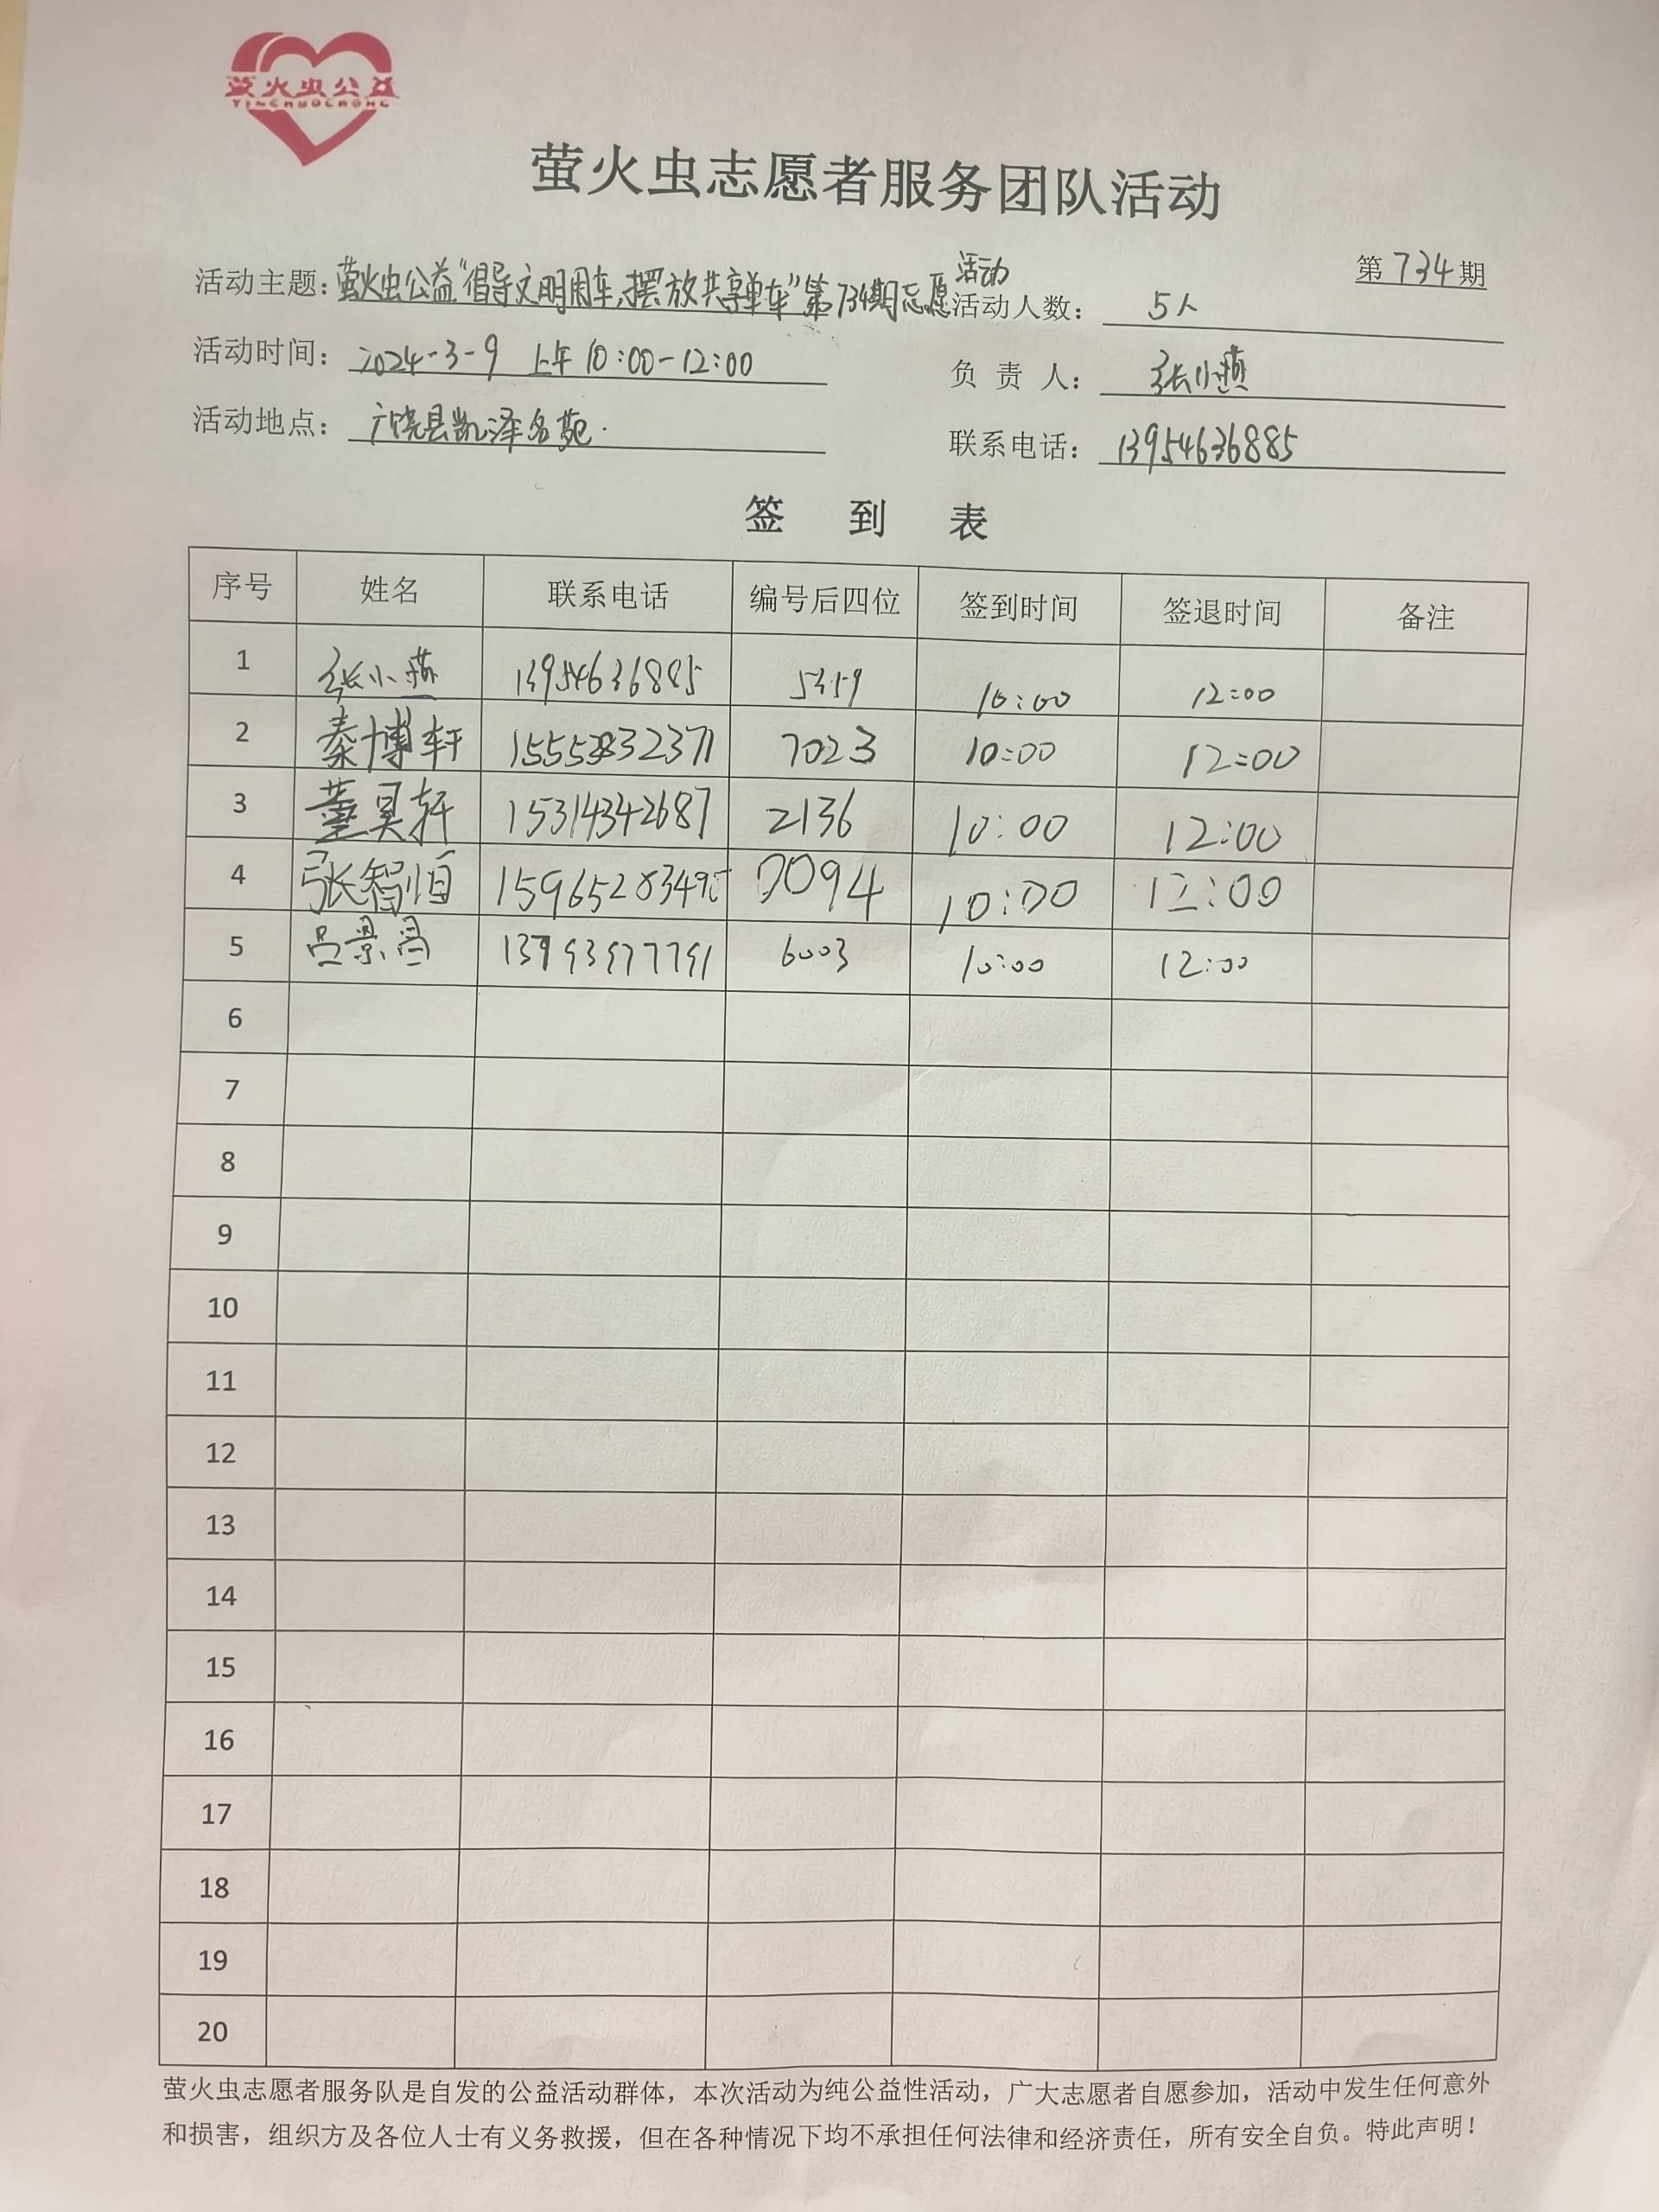 萤火虫公益
YINGHUOCHONG
萤火虫志愿者服务团队活动
第734期
活动主题：萤火虫公益“倡导文明用车，摆放共享单车”第734期志愿活动
活动人数：5人
活动时间：2024-3-9 上午10:00-12:00
负责人：张小燕
活动地点：广饶县凯泽名苑.
联系电话：13954636885
签到表
序号 姓名 联系电话 编号后四位 签到时间 签退时间 备注
1 张小燕 13954636885 5359 10:00 12:00
2 秦博轩 7023 10:00 12:00
3 董昊轩 15314342687 2136 10:00 12:00
4 张智恒 0094 10:00 12:00
5 吕景昌 6003 10:00 12:00
6
7
8
9
10
11
12
13
14
15
16
17
18
19
20
萤火虫志愿者服务队是自发的公益活动群体，本次活动为纯公益性活动，广大志愿者自愿参加，活动中发生任何意外
和损害，组织方及各位人士有义务救援，但在各种情况下均不承担任何法律和经济责任，所有安全自负。特此声明！